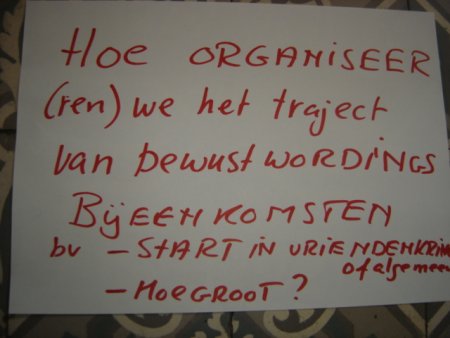 Hoe ORGANISEER
(ren) we het traject
van bewustWORDINGS
BijEENKOMSTEN
bv – START IN VRIENDENKRIN
of algemeen
– HOE GROOT?